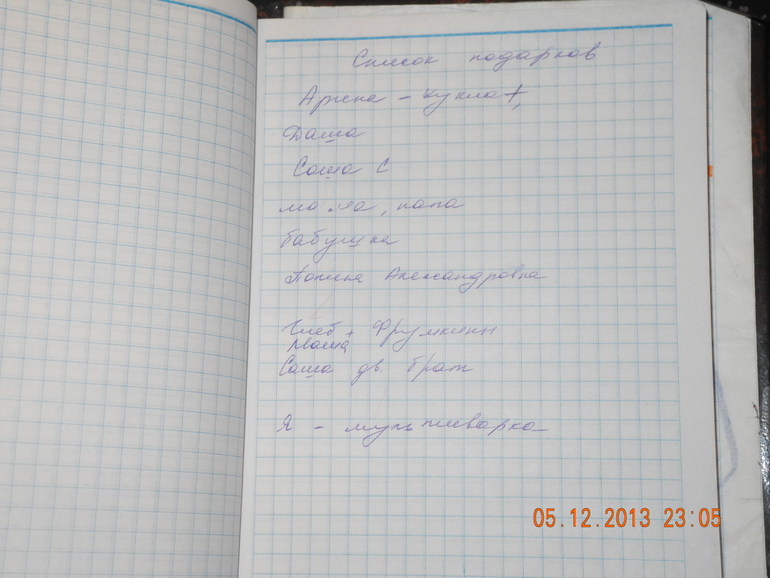 Список подарков
Арина - кукла+,
Даша
Саша С
мама, папа
бабушка
Полина Александровна
Глеб + Фрумкины
Маша
Саша дв. брат
Я - мультиварка
05.12.2013 23:05